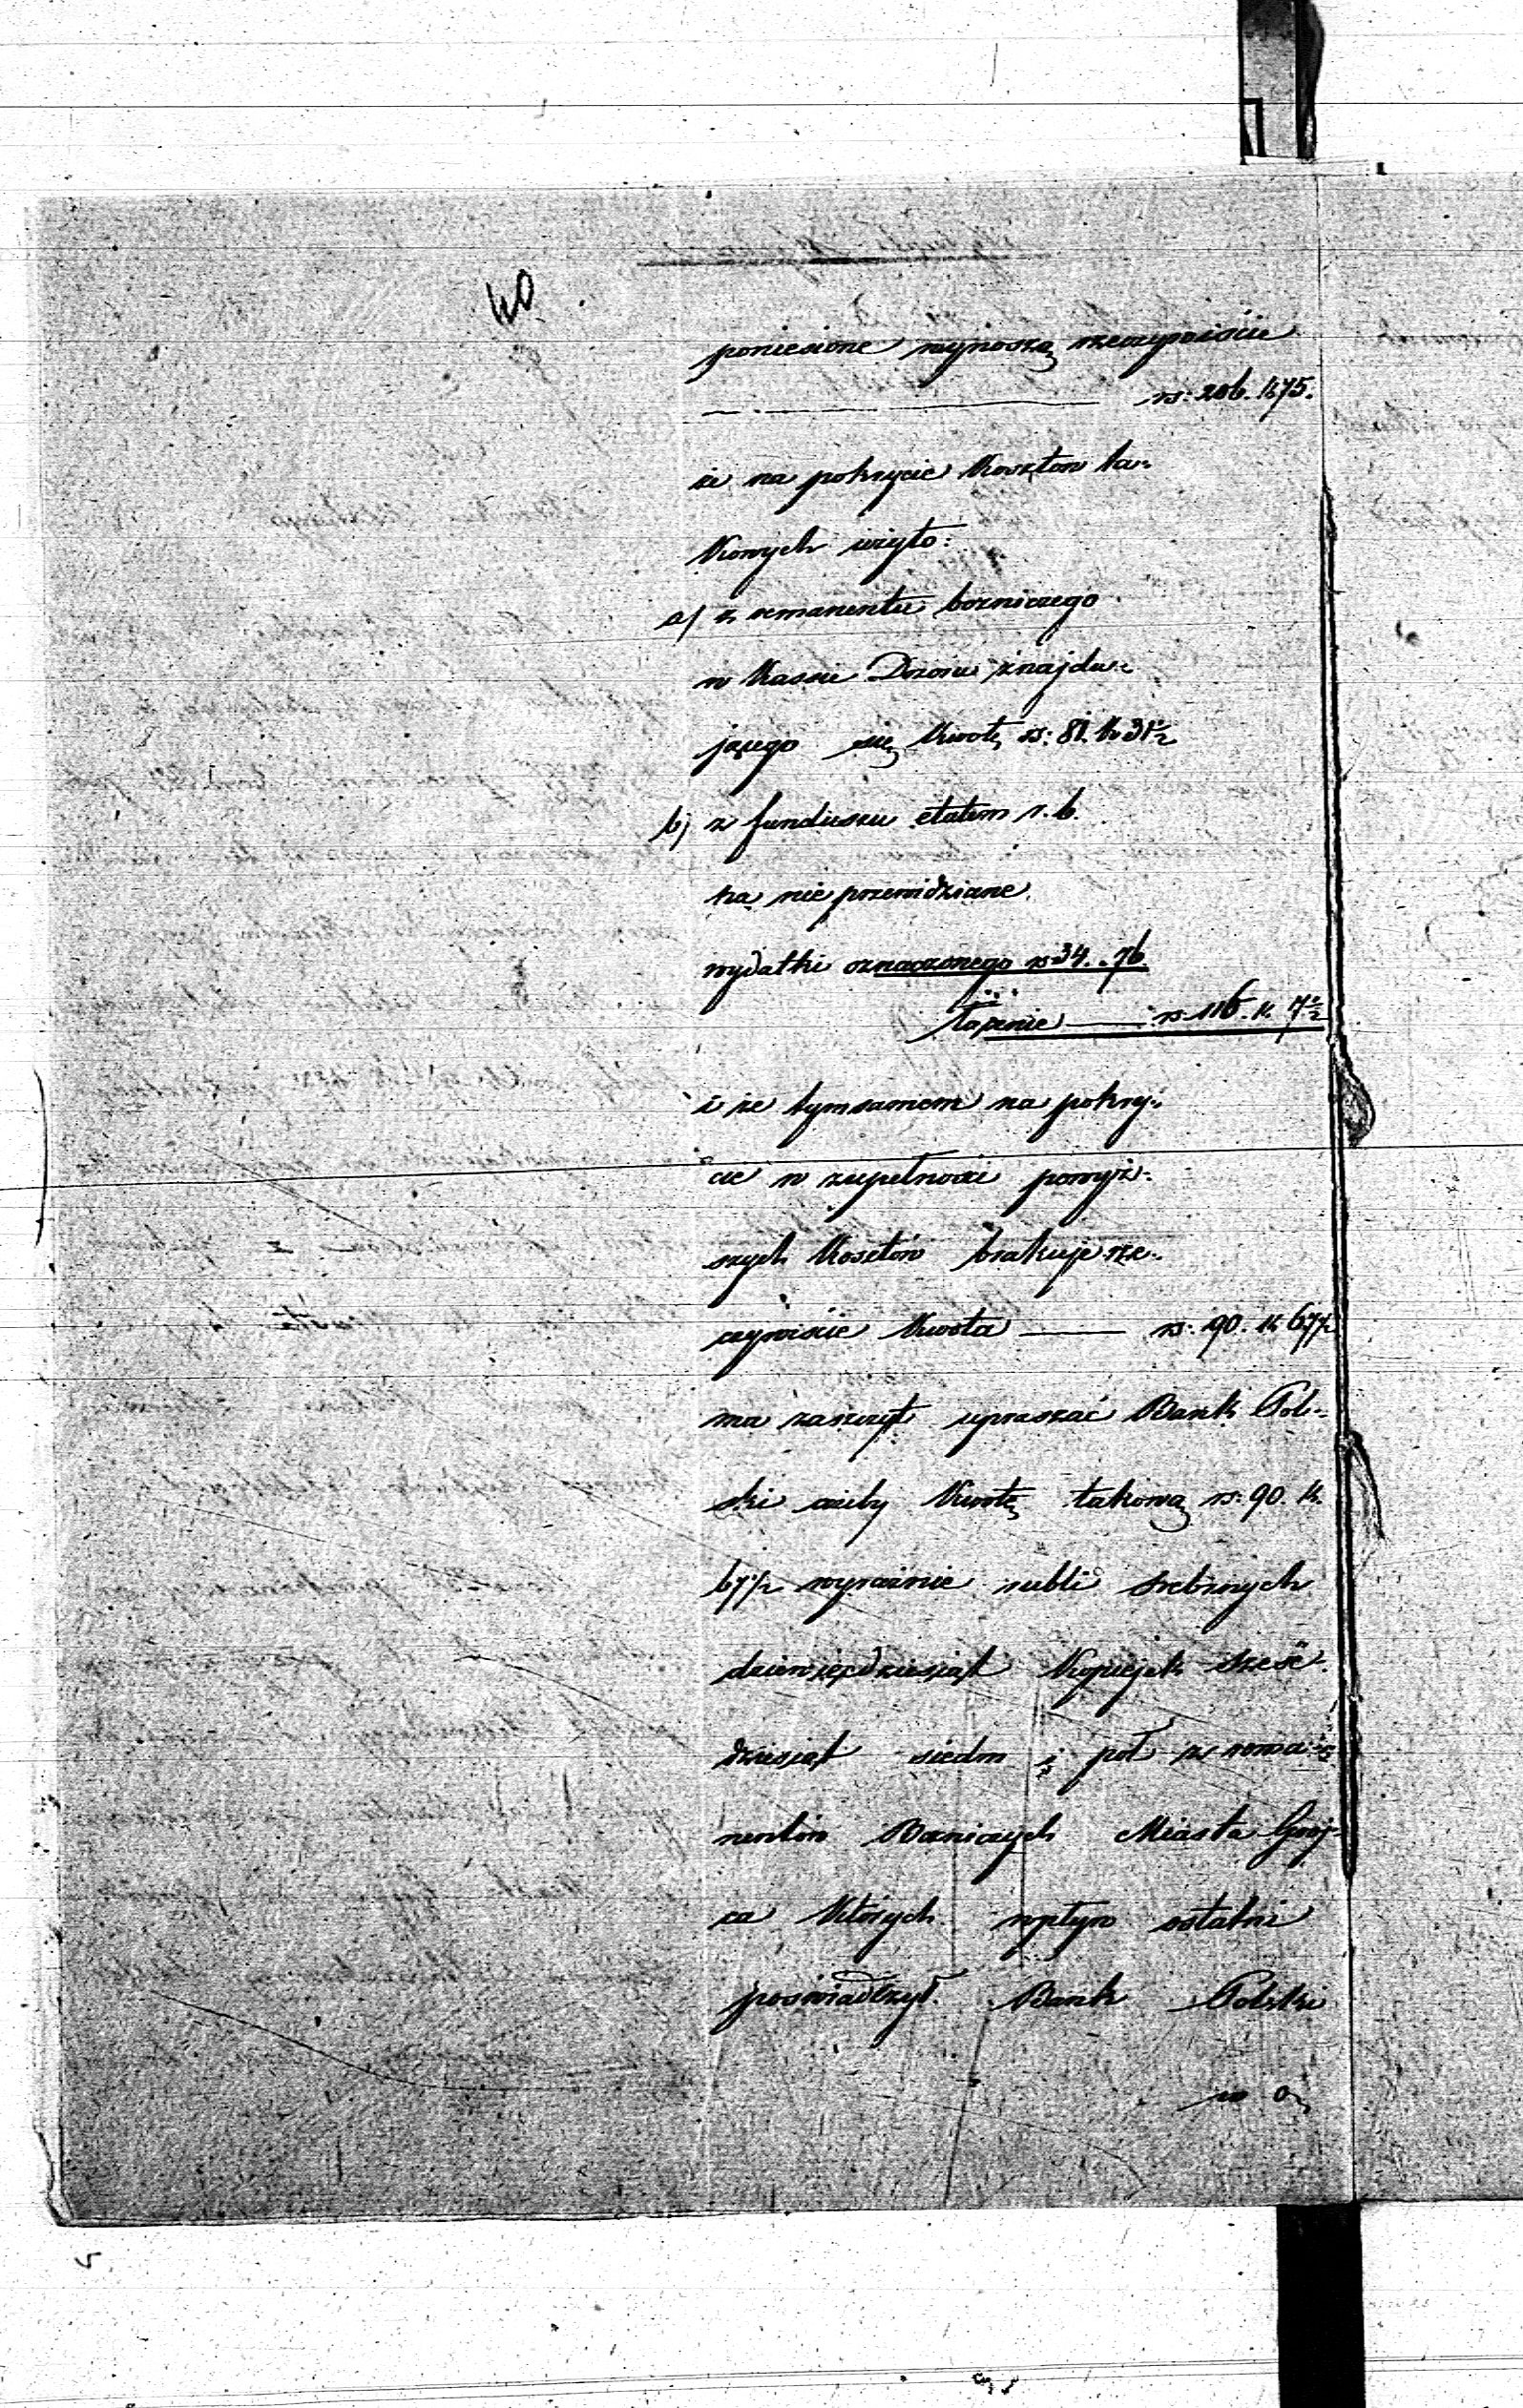 40
poniesione wynoszą rzeczywiście
rs: 206. k 75.
że na pokrycie kosztow ta=
kowych użyto:
a/ z remanentu bożniczego
w Kassie Dozoru znajdu=
jącego się kwotę rs: 81. k 31½
b/ z funduszu etatem r. b.
na nie przewidziane
wydatki oznaczonego rs 34. „ 76
łącznie —— rs 116. k 7½
i że tymsamem na pokry=
cie w zupełnosci powyż=
szych kosztów brakuje rze=
czywiscie kwota —— rs: 90. k 67½
ma zaszczyt upraszać Bank Pol=
ski ażeby kwotę takową rs: 90. k.
67½ wyraźnie rubli srebrnych
dziewięćdziesiąt kopiejek sześć=
dziesiąt siedm i poł z rema=
nentów Bożniczych Miasta
ca których wpływ ostatni
poświadczył Bank Polski